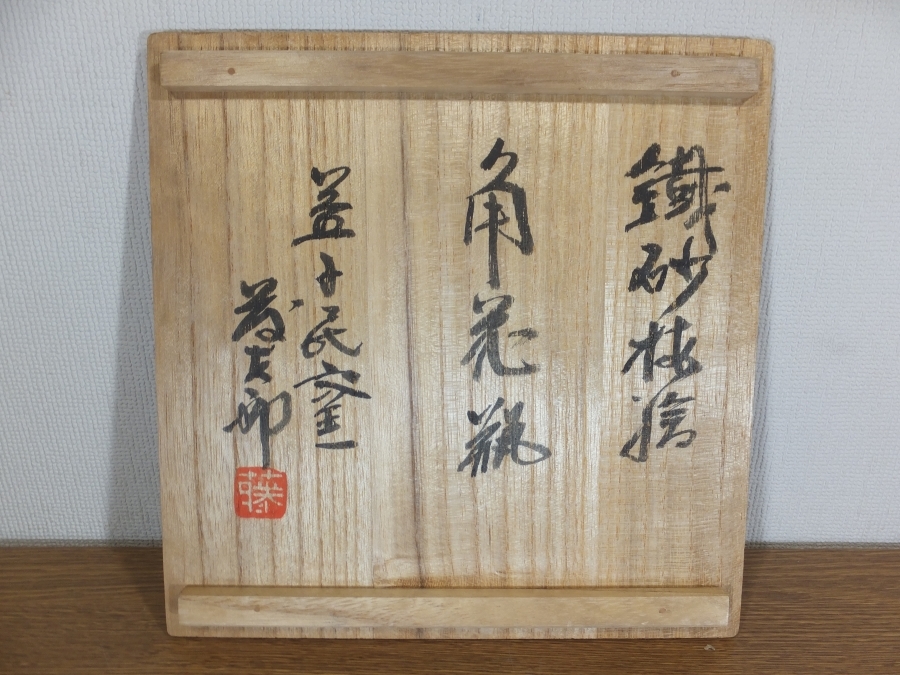 鐵砂梅繪
角花瓶
益子民窯
藤太郎
藤